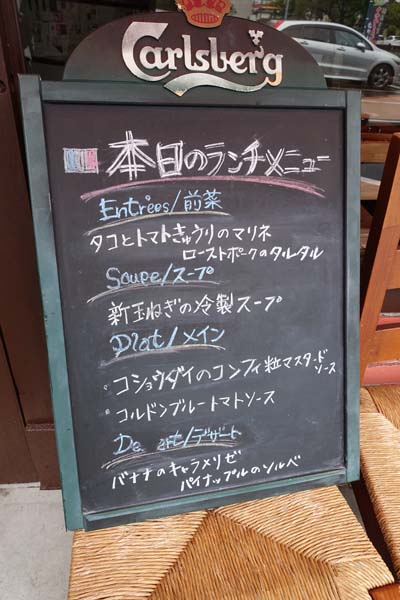 Carlsberg
本日のランチメニュー
Entrées/前菜
タコとトマトきゅうりのマリネ
ローストポークのタルタル
Soupe/スープ
新玉ねぎの冷製スープ
Plat/メイン
・コショウダイのコンフィ粒マスタードソース
・コルドンブルートマトソース
De ert/デザート
バナナのキャラメリゼ
パイナップルのソルベ